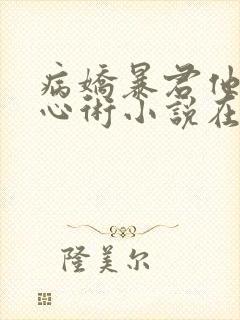 病嬌暴君他
心術小說在
隆美尔